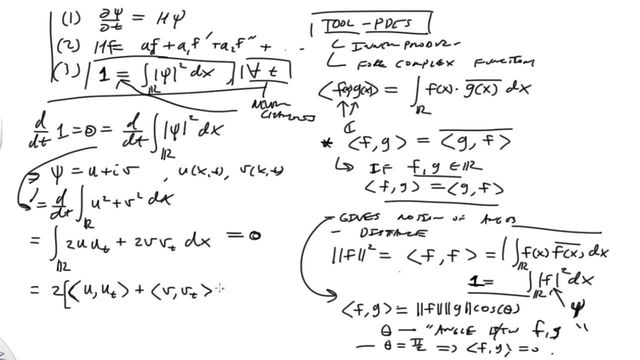 (1) ∂ψ/∂t = Hψ
(2) Hf = af + a₁f' + a₂f'' + ...
(3) 1 = ∫_ℝ |ψ|² dx ∀ t
d/dt 1 = 0 = d/dt ∫_ℝ |ψ|² dx
ψ = u + iv , u(x,t), v(x,t)
= d/dt ∫_ℝ u² + v² dx
= ∫_ℝ 2u u_t + 2v v_t dx = 0
= 2[⟨u, u_t⟩ + ⟨v, v_t⟩
TOOL - PDES
INNER PRODUC
FOR COMPLEX FUNCTION
⟨f(x), g(x)⟩ = ∫_ℝ f(x) · \overline{g(x)} dx
ℂ
* ⟨f, g⟩ = \overline{⟨g, f⟩}
IF f, g ∈ ℝ
⟨f, g⟩ = ⟨g, f⟩
GIVES NOTION OF ANGLES
- DISTANCE
||f||² = ⟨f, f⟩ = ∫_ℝ f(x) \overline{f(x)} dx
1 = ∫_ℝ |f|² dx
ψ
⟨f, g⟩ = ||f|| ||g|| cos(θ)
θ → "ANGLE BTW f, g"
- θ = π/2 ⇒ ⟨f, g⟩ = 0